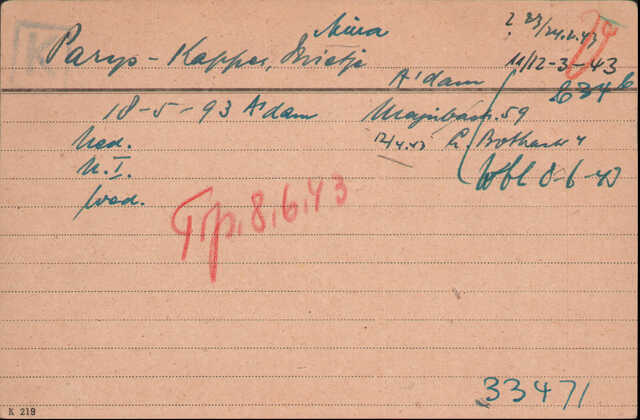 K
Nina
? 23/24.2.43
Parys-Kapper, Mietje
11/12-3-43
A'dam
634b
18-5-93 A'dam
59
Ned.
12/4.43
Bothastr 4
N.I.
Wbl 8-6-43
Wed.
Trp. 8.6.43
33471
K 219